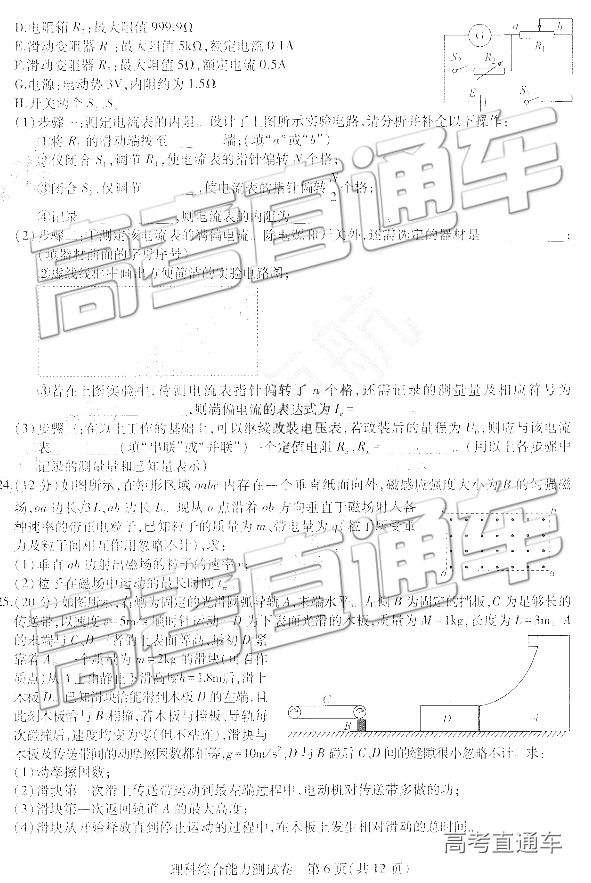 D.电阻箱R₁:最大阻值999.9Ω
E.滑动变阻器R₁:最大阻值5kΩ,额定电流0.1A
F.滑动变阻器R₂:最大阻值5Ω,额定电流0.5A
G.电源:电动势3V,内阻约为1.5Ω
H.开关两个S₁、S₂
(1)步骤一:测定电流表的内阻。设计了上图所示实验电路,请分析并补全以下操作:
①将R₂的滑动端拨至 端;(填“a”或“b”)
②仅闭合S₁,调节R₁,使电流表的指针偏转N个格;
③闭合S₂,仅调节 ,使电流表的指针偏转N/2个格;
④记录 ,则电流表的内阻为
(2)步骤二:测定该电流表的满偏电流。除电源和开关外,还需选定的器材是 ;
(填器材前面的字母序号)
②虚线线框中画出方便简洁的实验电路图;
③若在上图实验中,待测电流表指针偏转了n个格,还需记录的测量量及相应符号为
,则满偏电流的表达式为Ig=
(3)步骤三:在以上工作的基础上,可以继续改装电压表,若改装后的量程为U₀,则应与该电流
表 (填“串联”或“并联”)一个定值电阻Rx,Rx= 。(用以上各步骤中
记录的测量量和已知量表示)
24.(12分)如图所示,在矩形区域oabc内存在一个垂直纸面向外,磁感应强度大小为B的匀强磁
场,oa边长√3L,ab边长L。现从o点沿着ob方向垂直于磁场射入各
种速率的带正电粒子,已知粒子的质量为m、带电量为q(粒子所受重
力及粒子间相互作用忽略不计),求:
(1)垂直ab边射出磁场的粒子的速率v;
(2)粒子在磁场中运动的最长时间tm。
25.(20分)如图所示,右侧为固定的光滑圆弧导轨A,末端水平。左侧B为固定的挡板,C为足够长的
传送带,以速度v=5m/s顺时针运动。D为下表面光滑的木板,质量为M=1kg,长度为L=3m。A
的末端与C、D二者的上表面等高,最初D紧
靠着A。一个质量为m=2kg的滑块(可看作
质点)从A上由静止下滑高度h=1.8m后,滑上
木板D。已知滑块恰能滑到木板D的左端,且
此刻木板恰与B相撞,若木板与挡板、导轨每
次碰撞后,速度均变为零(但不粘连),滑块与
木板及传送带间的动摩擦因数都相等,g=10m/s²,D与B碰后C、D间的缝隙很小忽略不计。求:
(1)动摩擦因数;
(2)滑块第一次滑上传送带运动到最左端过程中,电动机对传送带多做的功;
(3)滑块第一次返回轨道A的最大高度;
(4)滑块从开始释放直到停止运动的过程中,在木板上发生相对滑动的总时间。
理科综合能力测试卷 第6页(共12页)
高考直通车